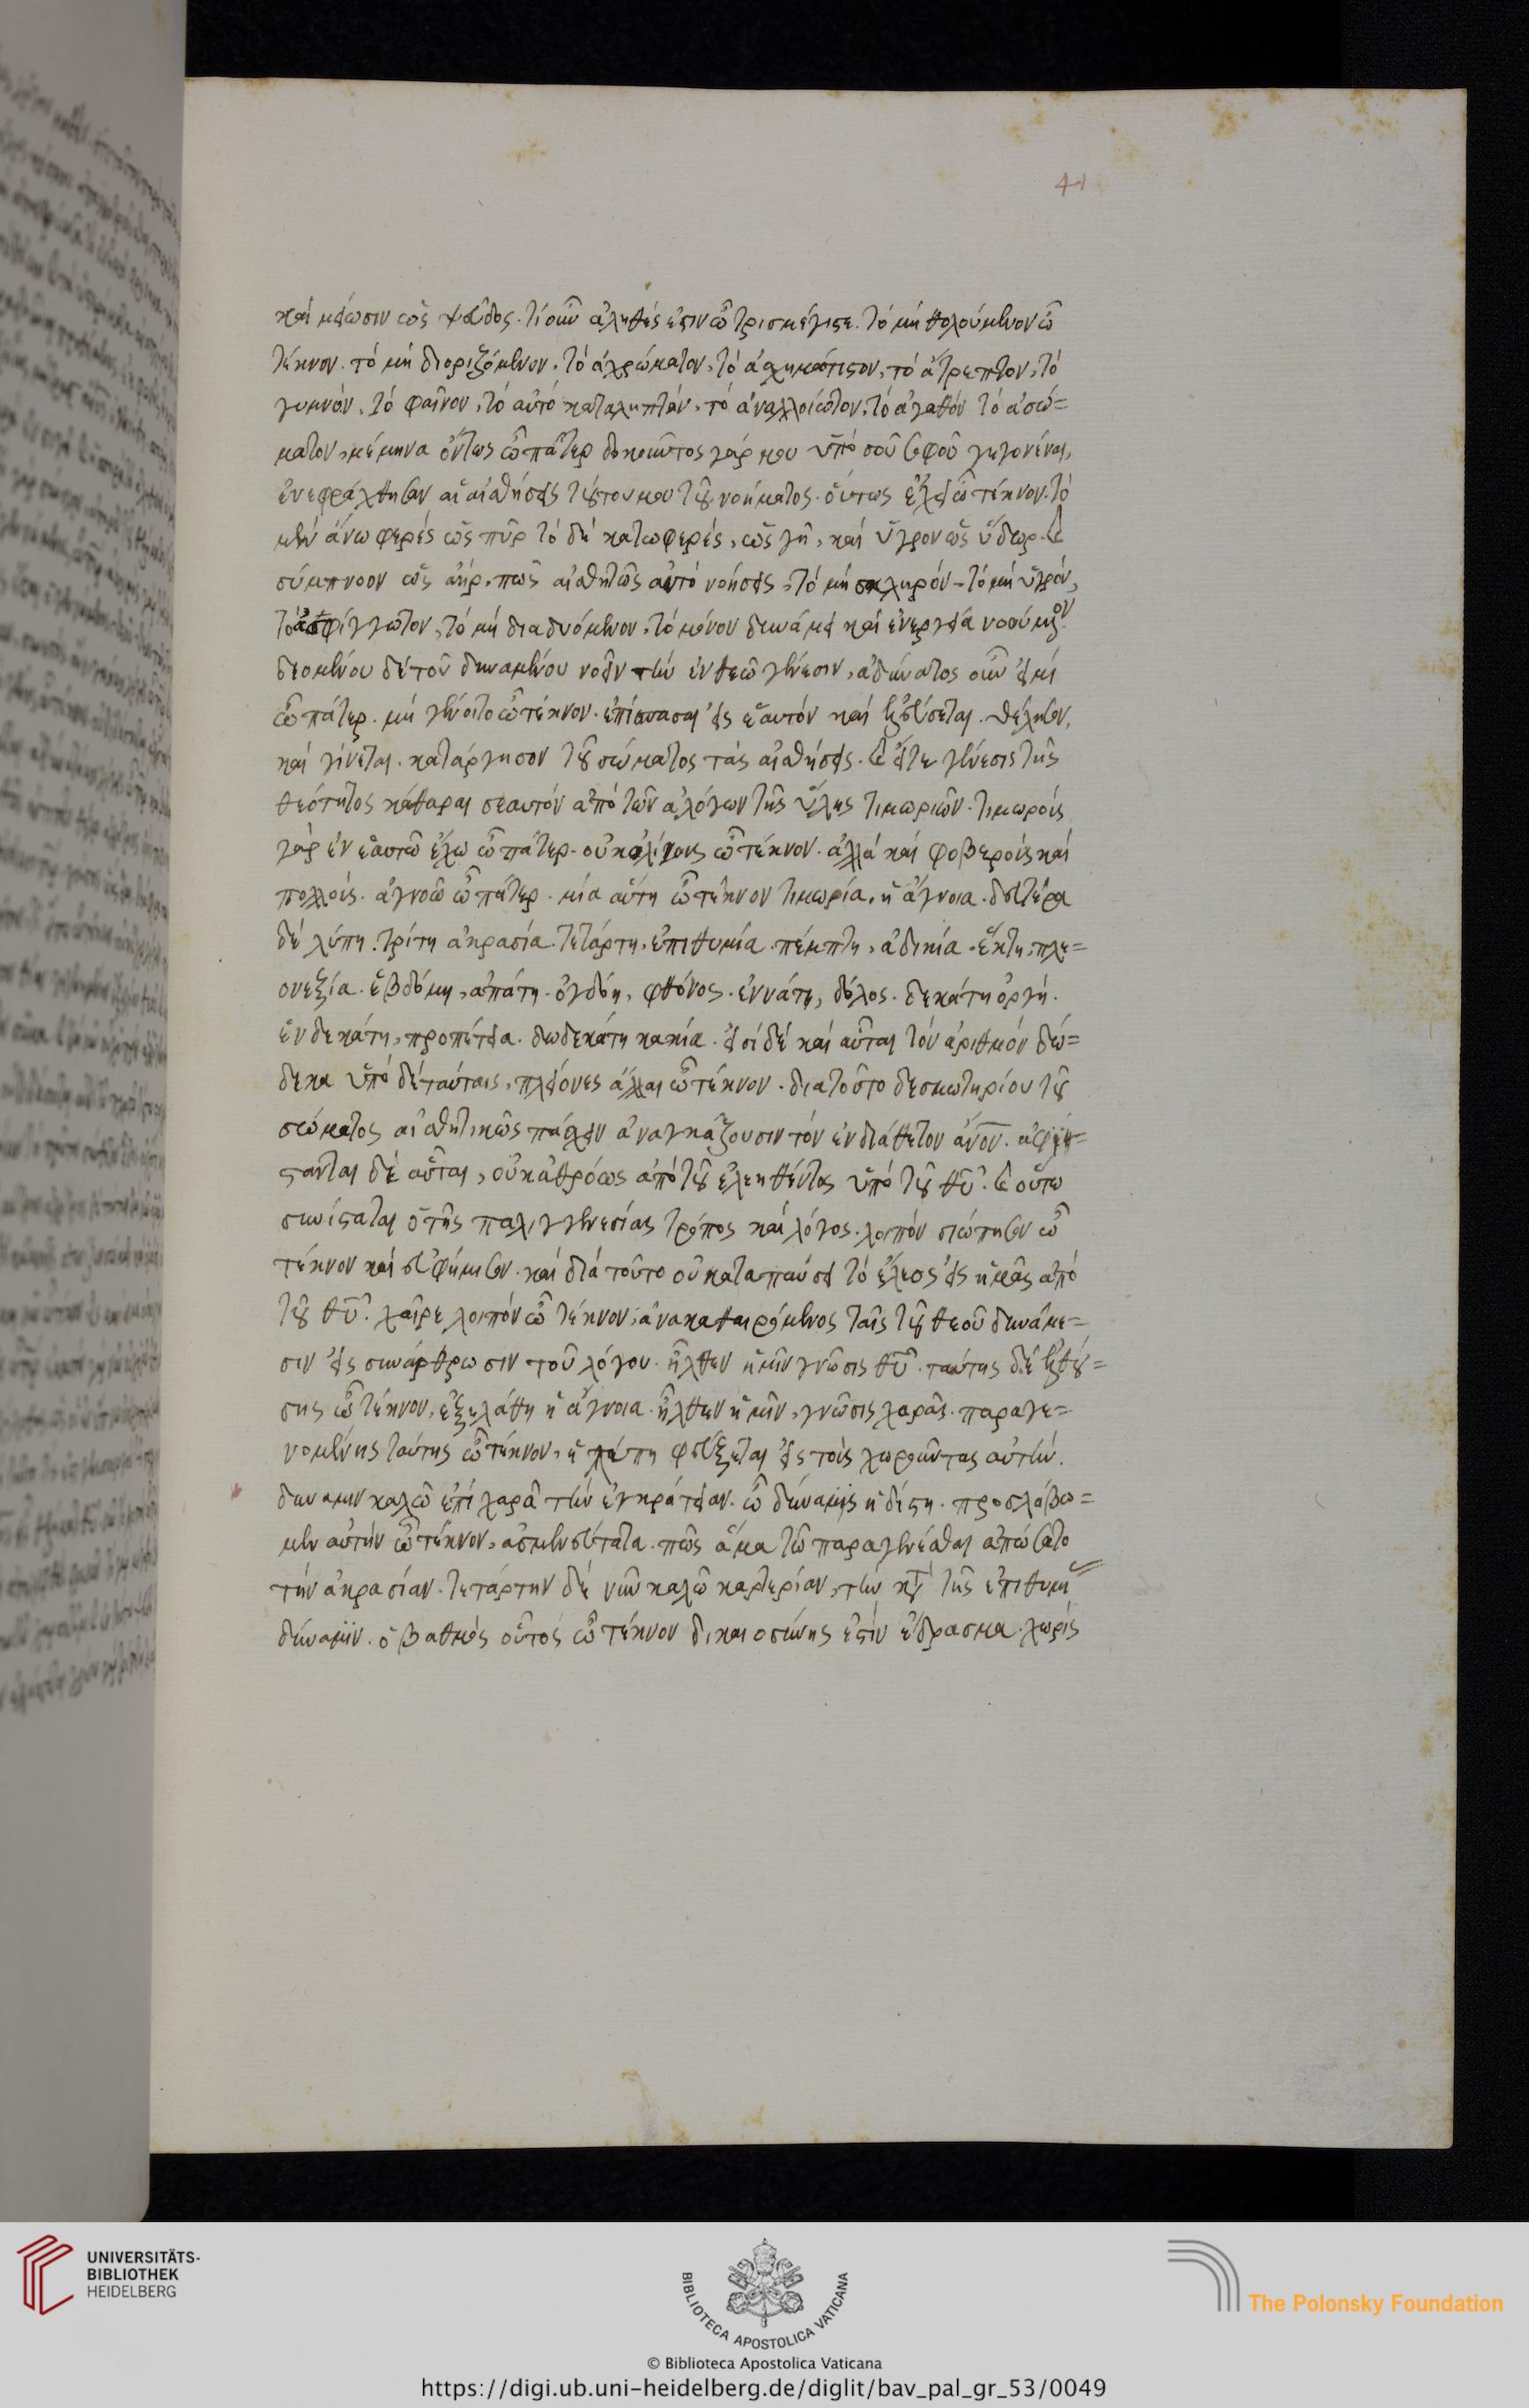 41
καὶ μείωσιν ὡς ψεῦδος. τί οὖν ἀληθές ἐστιν ὦ τρισμέγιστε. τὸ μὴ θολούμενον ὦ
τέκνον. τὸ μὴ διοριζόμενον, τὸ ἀχρώματον, τὸ ἀσχημάτιστον, τὸ ἄτρεπτον, τὸ
γυμνόν, τὸ φαῖνον, τὸ αὐτὸ καταληπτόν, τὸ ἀναλλοίωτον, τὸ ἀγαθόν τὸ ἀσώ=
ματον, μέμηνα ὄντως ὦ πάτερ δοκοῦντος γάρ μου ὑπὸ σοῦ σοφοῦ γεγονέναι,
ἐνεφράχθησαν αἱ αἰσθήσεις τούτου μου τοῦ νοήματος. οὕτως ἔχει ὦ τέκνον. τὸ
μὲν ἀνωφερές ὡς πῦρ τὸ δὲ κατωφερές, ὡς γῆ, καὶ ὑγρὸν ὡς ὕδωρ. καὶ
σύμπνοον ὡς ἀήρ, πῶς αἰσθητῶς αὐτὸ νοήσεις, τὸ μὴ σκληρόν, τὸ μὴ ὑγρόν,
τὸ ἀσφίγγωτον, τὸ μὴ διαδυόμενον, τὸ μόνον δυνάμει καὶ ἐνεργείᾳ νοούμενον.
δεομένου δὲ τοῦ δυναμένου νοεῖν τὴν ἐν θεῷ γένεσιν, ἀδύνατος οὖν εἰμί
ὦ πάτερ. μὴ γένοιτο ὦ τέκνον. ἐπίσπασαι εἰς ἑαυτόν καὶ ἐλεύσεται. θέλησον,
καὶ γίνεται. κατάργησον τοῦ σώματος τὰς αἰσθήσεις. καὶ ἔσται γένεσις τῆς
θεότητος κάθαραι σεαυτόν ἀπὸ τῶν ἀλόγων τῆς ὕλης τιμωριῶν. τιμωρούς
γὰρ ἐν ἑαυτῷ ἔχω ὦ πάτερ. οὐκ ὀλίγους ὦ τέκνον. ἀλλὰ καὶ φοβερούς καὶ
πολλούς. ἀγνοῶ ὦ πάτερ. μία αὕτη ὦ τέκνον τιμωρία, ἡ ἄγνοια. δευτέρα
δὲ λύπη. τρίτη ἀκρασία. τετάρτη, ἐπιθυμία. πέμπτη, ἀδικία. ἕκτη, πλε=
ονεξία. ἑβδόμη, ἀπάτη. ὀγδόη, φθόνος. ἐννάτη, δόλος. δεκάτη ὀργή.
ἑνδεκάτη, προπέτεια. δωδεκάτη κακία. εἰσὶ δὲ καὶ αὗται τὸν ἀριθμόν δώ=
δεκα ὑπὸ δὲ ταύταις, πλείονες ἄλλαι ὦ τέκνον. διὰ τοῦ δεσμωτηρίου τοῦ
σώματος αἰσθητικῶς πάσχειν ἀναγκάζουσιν τὸν ἐνδιάθετον ἄνον. ἀφίσ=
τανται δὲ αὗται, οὐκ ἀθρόως ἀπὸ τοῦ ἐλεηθέντος ὑπὸ τοῦ θῦ. καὶ οὕτω
συνίσταται ὁ τῆς παλιγγενεσίας τρόπος καὶ λόγος. λοιπόν σιώπησον ὦ
τέκνον καὶ εὐφήμησον. καὶ διὰ τοῦτο οὐ καταπαύσει τὸ ἔλεος εἰς ἡμᾶς ἀπὸ
τοῦ θῦ. χαῖρε λοιπὸν ὦ τέκνον, ἀνακαθαιρόμενος ταῖς τοῦ θεοῦ δυνάμε=
σιν εἰς συνάρθρωσιν τοῦ λόγου. ἦλθεν ἡμῖν γνῶσις θῦ. ταύτης δὲ ἐλθού=
σης ὦ τέκνον, ἐξηλάθη ἡ ἄγνοια. ἦλθεν ἡμῖν, γνῶσις χαρᾶς. παραγε=
νομένης ταύτης ὦ τέκνον, ἡ λύπη φεύξεται εἰς τοὺς χωροῦντας αὐτήν.
δύναμιν καλῶ ἐπὶ χαρᾷ τὴν ἐγκράτειαν. ὦ δύναμις ἡδίστη. προσλάβω=
μεν αὐτὴν ὦ τέκνον, ἀσμενεύτατα. πῶς ἅμα τῷ παραγενέσθαι ἀπώσατο
τὴν ἀκρασίαν. τετάρτην δὲ νῦν καλῶ καρτερίαν, τὴν κτ τῆς ἐπιθυμί
δύναμιν. ὁ βαθμός οὗτος ὦ τέκνον δικαιοσύνης ἐστὶν ἕδρασμα. χωρίς
UNIVERSITÄTS-
BIBLIOTHEK
HEIDELBERG
BIBLIOTECA APOSTOLICA VATICANA
The Polonsky Foundation
© Biblioteca Apostolica Vaticana
https://digi.ub.uni-heidelberg.de/diglit/bav_pal_gr_53/0049